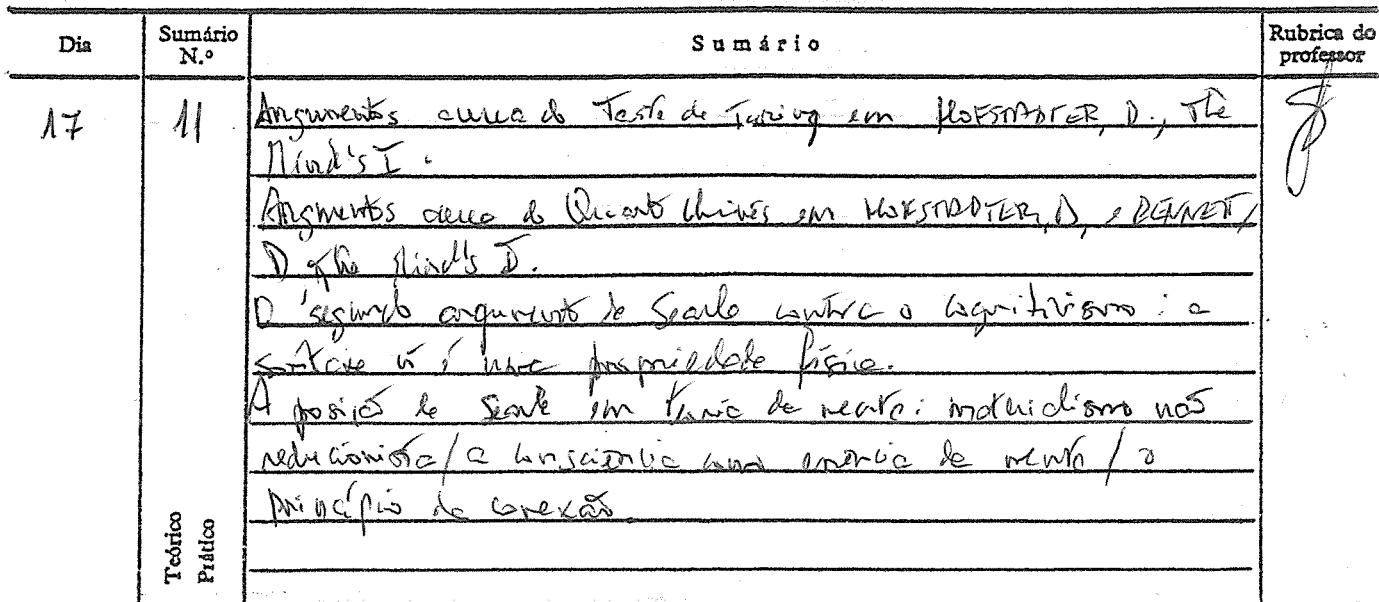 Dia
Sumário N.º
Sumário
Rubrica do professor
17
11
Argumentos acerca do Teste de Turing em HOFSTADTER, D., The
Mind's I.
Argumentos acerca do Quarto Chinês em HOFSTADTER, D, e DENNETT,
D The Mind's I.
O segundo argumento de Searle contra o cognitivismo: a
sintaxe ñ é uma propriedade física.
A posição de Searle em teoria da mente: materialismo não
reducionista / a consciência como essência da mente / o
princípio da conexão.
Teórico
Prático